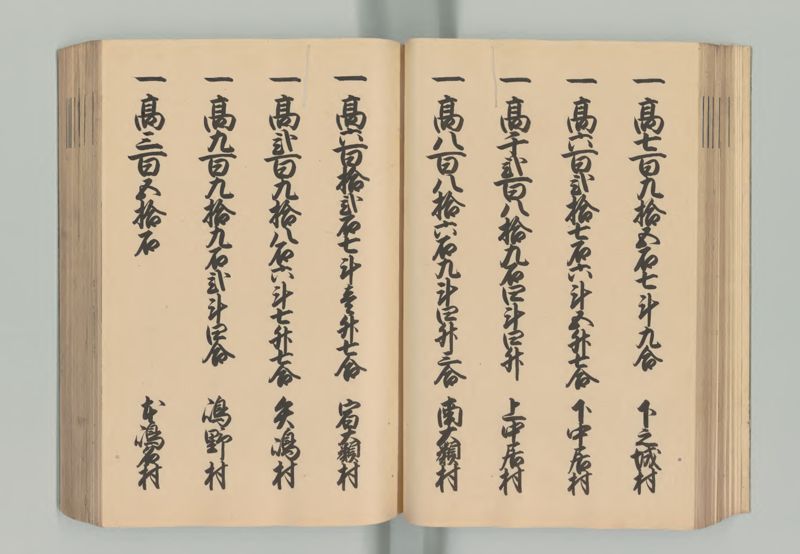 一 高七百九拾五石七斗九合 下之城村
一 高六百弐拾七石六斗五升七合 下中居村
一 高千弐百八拾九石四斗四升 上中居村
一 高八百八拾六石九斗四升三合 南大類村
一 高六百拾弐石七斗壱升七合 宿大類村
一 高弐百九拾八石六斗七升七合 矢嶋村
一 高九百九拾九石弐斗四合 嶋野村
一 高三百五拾石 元嶋名村